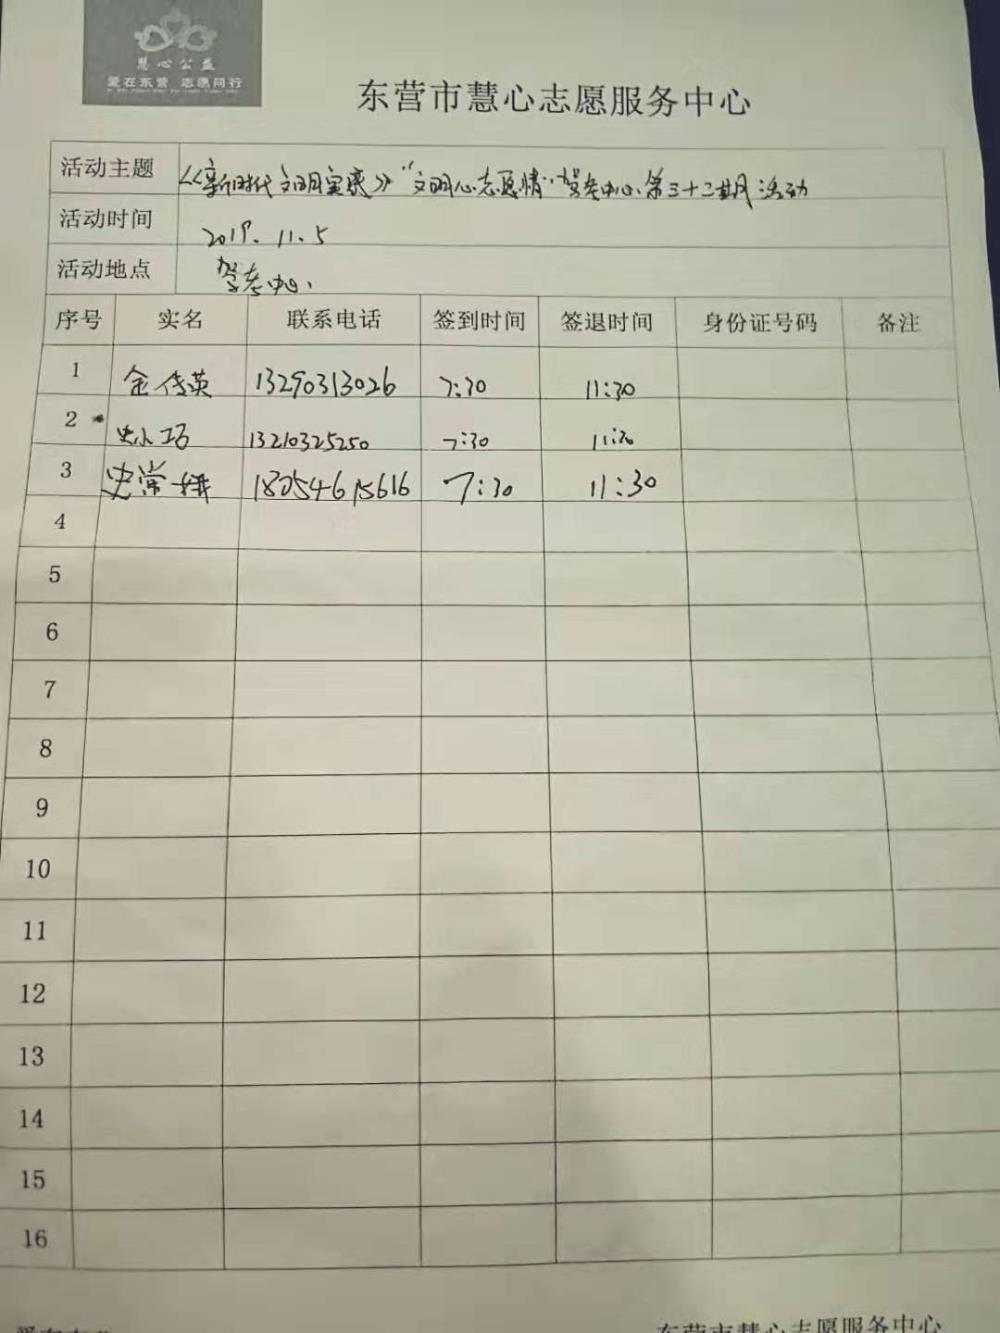 慧心公益
爱在东营 志愿同行
东营市慧心志愿服务中心
活动主题 《新时代文明实践》“文明心志愿情”驾考中心第三十二期活动
活动时间 2019.11.5
活动地点 驾考中心
序号 实名 联系电话 签到时间 签退时间 身份证号码 备注
1 金传英 13290313026 7:30 11:30
2 史小巧 13210325250 7:30 11:30
3 史常娥 18254615616 7:30 11:30
4
5
6
7
8
9
10
11
12
13
14
15
16
东营市慧心志愿服务中心